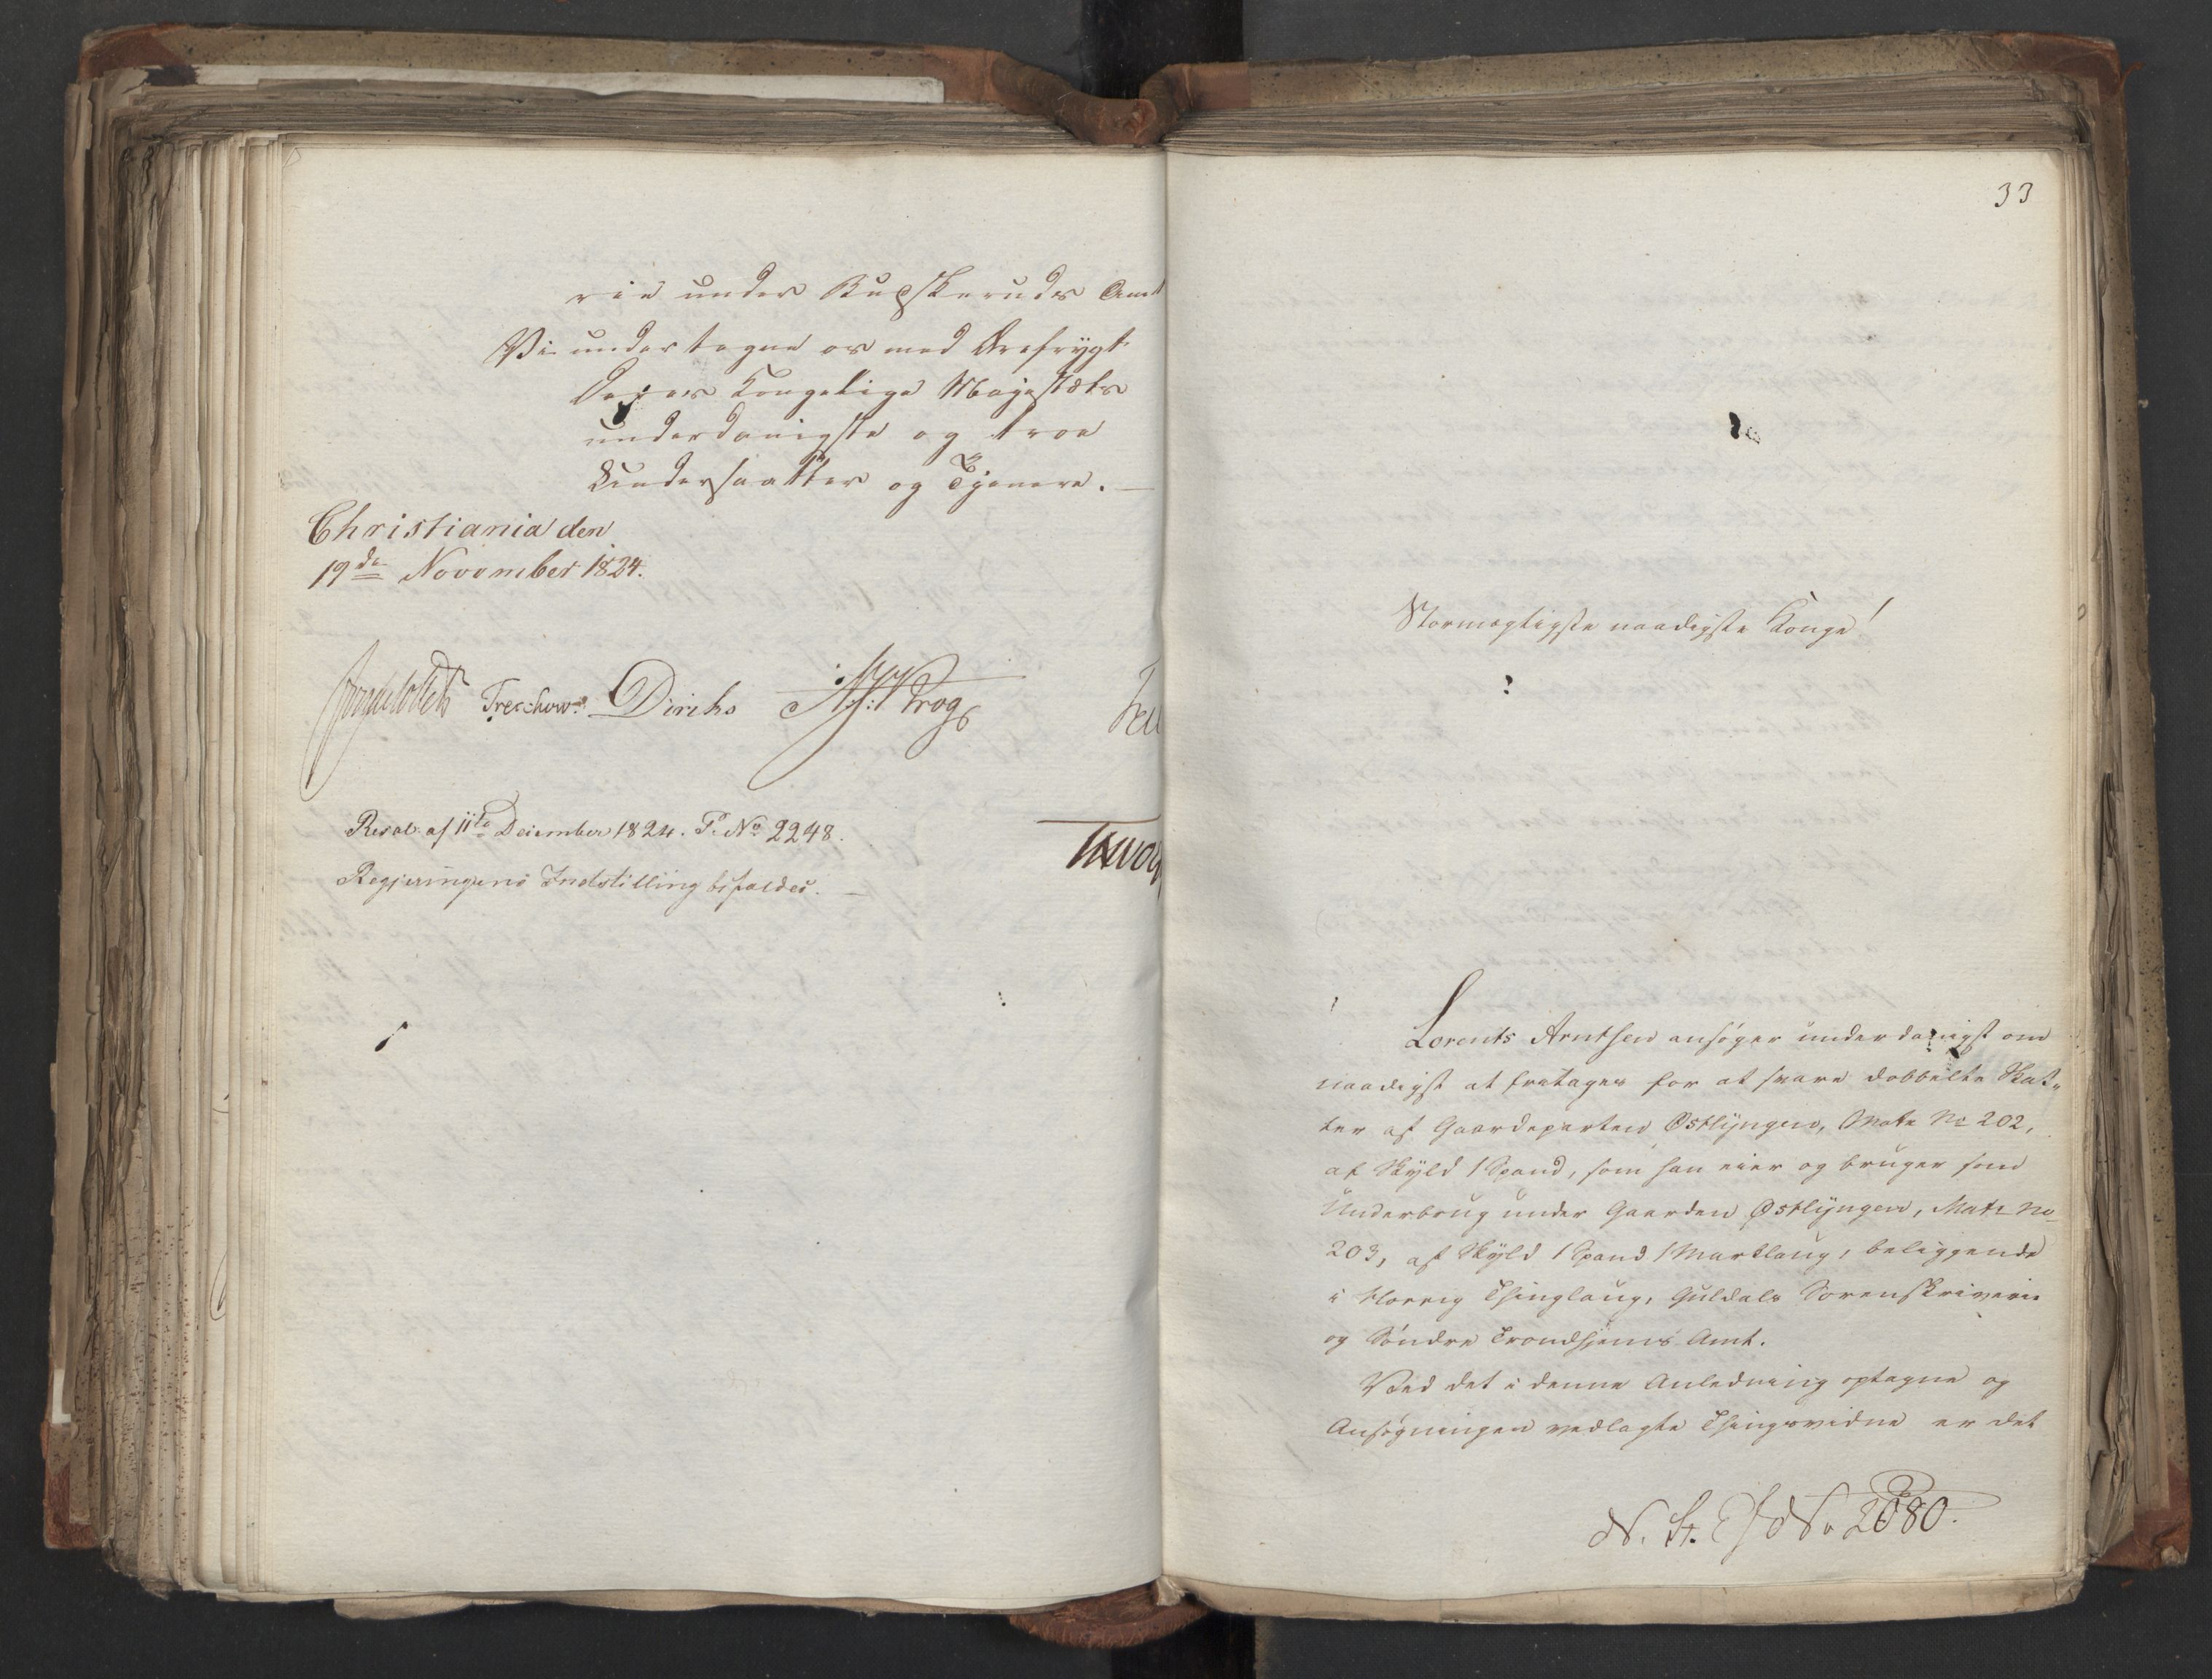 rie under Buskeruds Amt
Vi undertegne os med Ærefrygt
Deres Kongelige Majestæts
underdanigste og troe
Undersaatter og Tjenere. —
Christiania den
19de November 1824.
Treschow. Dirichs Krog
Resol: af 11te December 1824. P. No 2248.
Regjeringens Indstilling bifaldes. —
33
Stormægtigste naadigste Konge!
Lorents Arntsen ansøger underdanigst om
naadigst at fritages for at svare dobbelte Skat-
ter af Gaardeparten Østlyngen, Matr No 202,
af Skyld 1 Spand, som han eier og bruger som
Underbrug under Gaarden Østlyngen, Matr No
203, af Skyld 1 Spand 1 Marklaug, beliggende
i Horrig Thinglaug, Guldals Sorenskriverie
og Søndre Trondhjems Amt.
Ved det i denne Anledning optagne og
Ansøgningen vedlagte Thingsvidne er det
N. St. No 2080.